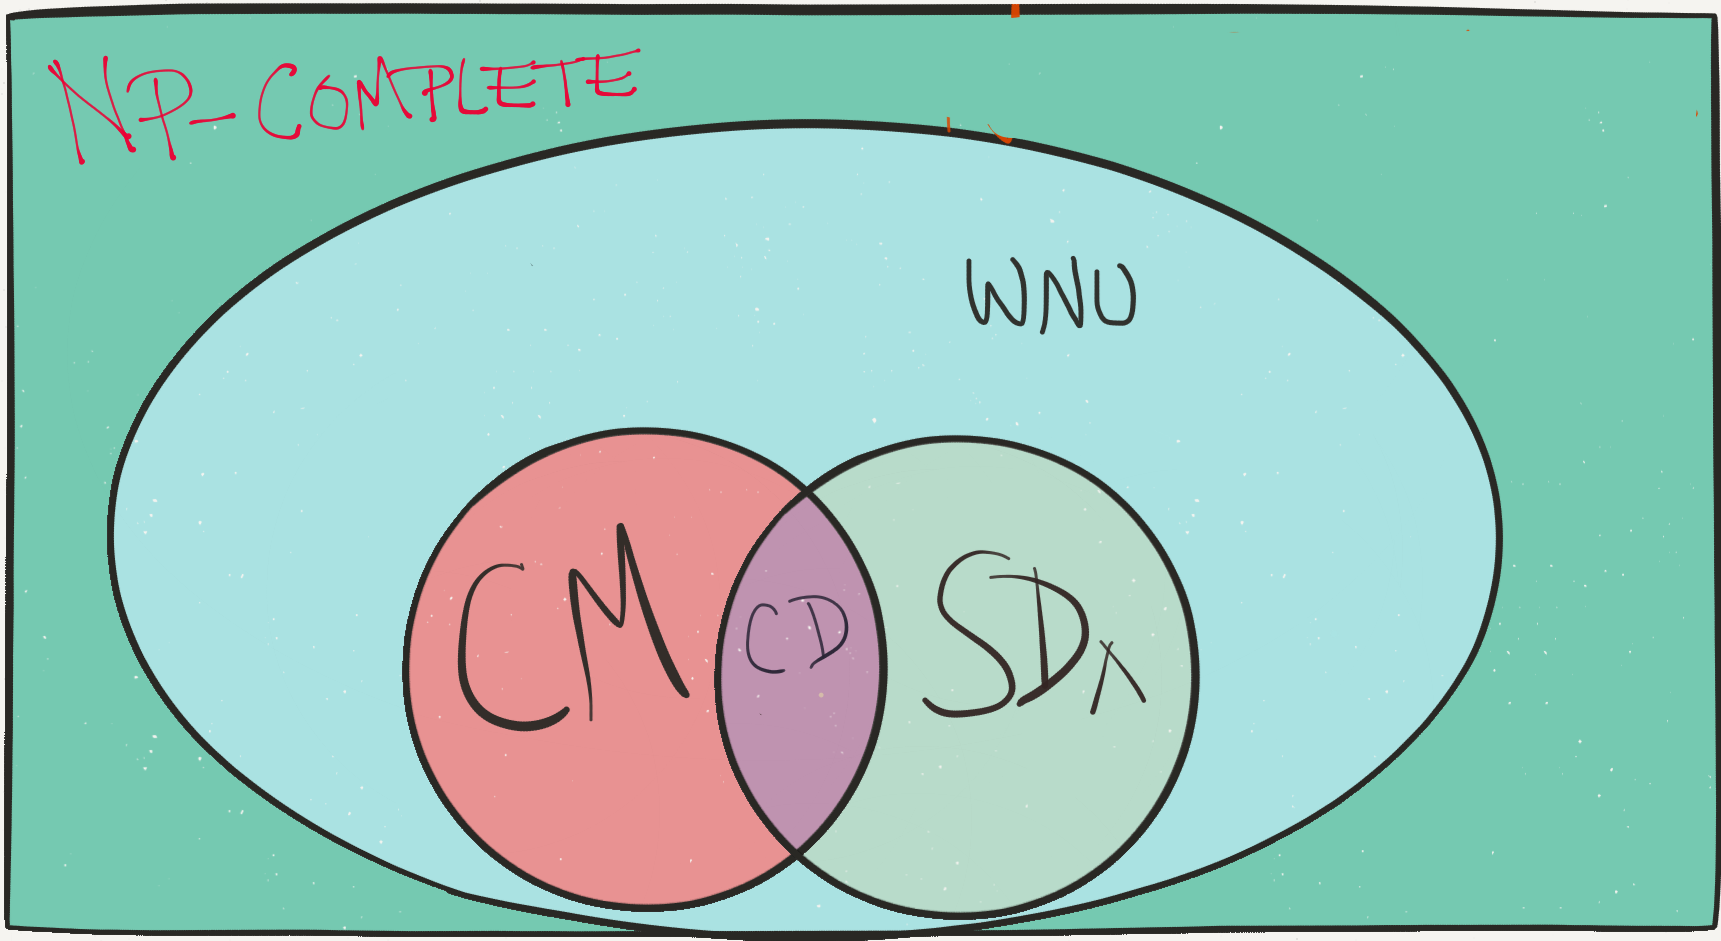 NP-COMPLETE
WNU
CM
CD
SD∧